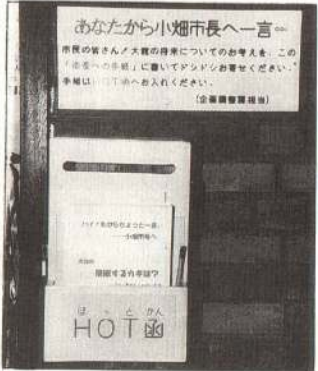 あなたから小畑市長へ一言…
市民の皆さん！大館の将来についてのお考えを、この
「市長への手紙」に書いてドシドシお寄せください。
手紙はHOT函へお入れください。
（企画調整課担当）
ハイ！私からちょっと一言、
小畑市長へ
ほっとかん
HOT函